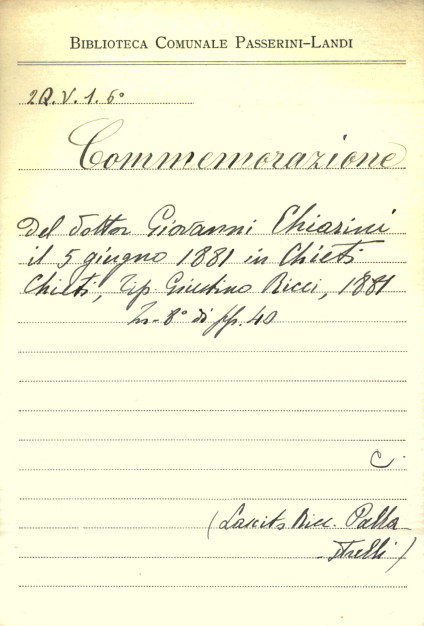 BIBLIOTECA COMUNALE PASSERINI-LANDI
2Q.V.1.5°
Commemorazione
Del dottor Giovanni Chiarini
il 5 giugno 1881 in Chieti
Chieti, Tip. Giustino Ricci, 1881
In-8° di pp. 40
C.
(Lascito Ricc. Palla-
-strelli)